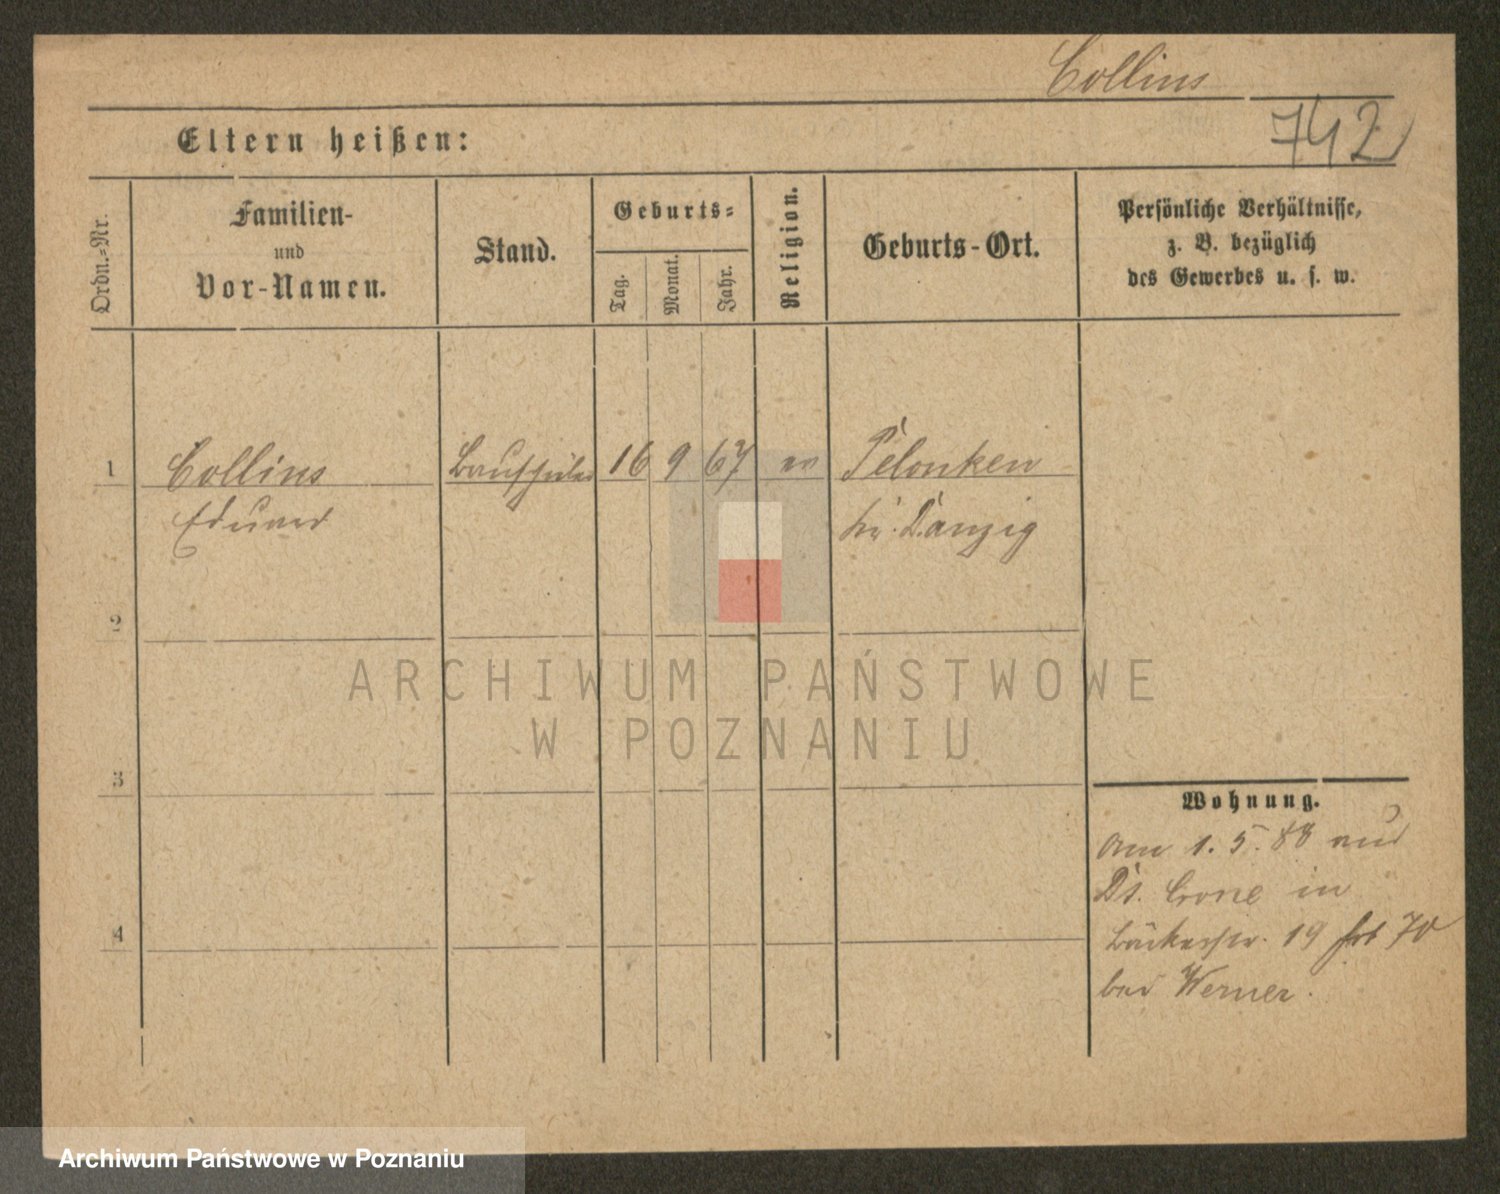 Collins
742
Eltern heißen:
Ordn.-Nr.
Familien-
und
Vor-Namen.
Stand.
Geburts-
Tag.
Monat.
Jahr.
Religion.
Geburts-Ort.
Persönliche Verhältnisse,
z. B. bezüglich
des Gewerbes u. s. w.
1
Collins
Eduard
Bauschüler
16
9
67
ev
Pelonken
bei Danzig
2
3
4
Wohnung.
Am 1. 5. 88 aus
Dt. Crone in
Bäckerstr. 19
70
bei Werner.
ARCHIWUM PAŃSTWOWE
W POZNANIU
Archiwum Państwowe w Poznaniu